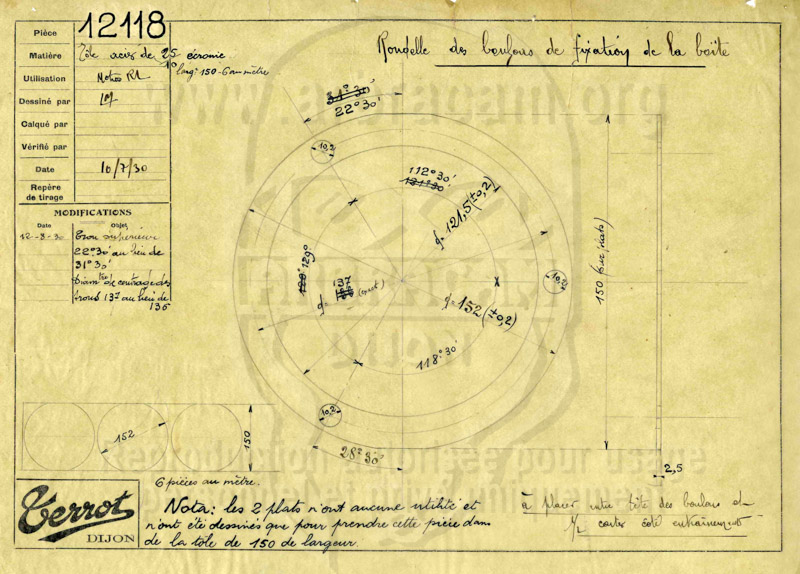 Pièce 12118
Matière Tôle acier de 25/10 écrouie
larg. 150 - 6 au mètre
Utilisation Motos RL
Dessiné par
Calqué par
Vérifié par
Date 10/7/30
Repère
de tirage
MODIFICATIONS
Date Objet
12-8-30 Trou supérieur
22°30' au lieu de
31°30'
Diamètre de centrage des
trous 137 au lieu de
136
Rondelle des boulons de fixation de la boîte
31°30'
22°30'
10,2
112°30'
121°30
d= 121,5 (±0,2)
128° 129°
d= 137
10,2
d= 152 (±0,2)
118°30'
10,2
28°30'
150 (sur plats)
2,5
152
150
6 pièces au mètre.
Terrot
DIJON
Nota: les 2 plats n'ont aucune utilité et
n'ont été dessinés que pour prendre cette pièce dans
de la tôle de 150 de largeur.
à placer entre tête des boulons et
1/2 carter côté entraînement